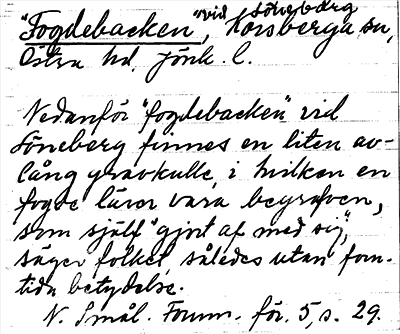 "Fogdebacken", vid Löneberg, Korsberga sn,
Östra hd. Jönk. l.
Nedanför "fogdebacken" vid
Löneberg finnes en liten av-
lång gravkulle, i hvilken en
fogde lärer vara begrafven,
som själf "gjort af med sig",
säger folket, således utan forn-
tida betydelse.
N. Smål. Fornm. för. 5, s. 29.